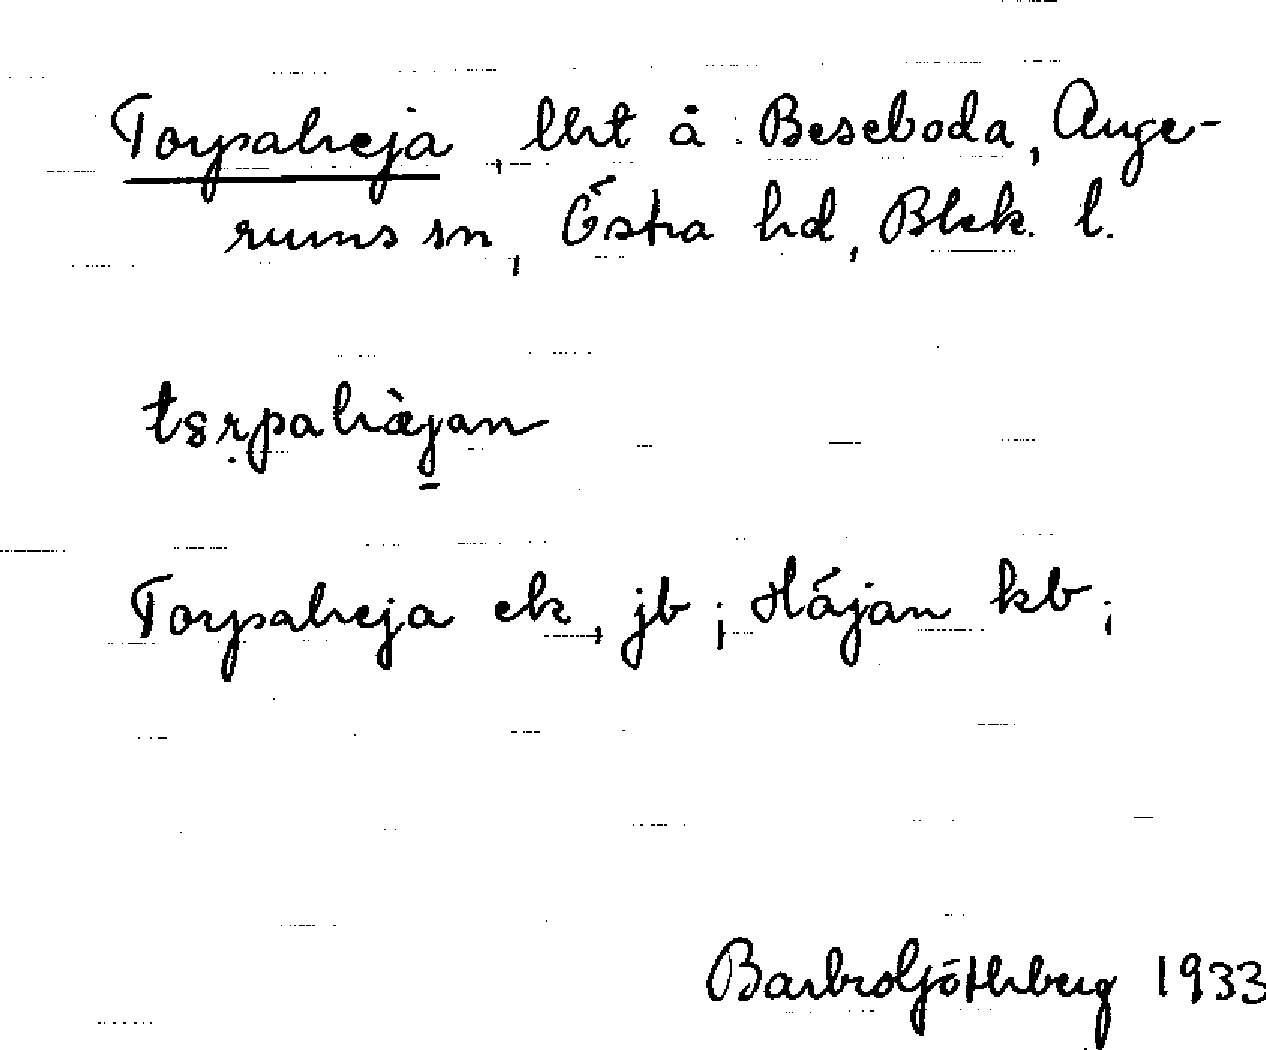 Torpaheja, lht å Beseboda, Auge-
rums sn, Östra hd, Blek. l.
tɞr̩pahæ̀jan
Torpaheja ek, jb; Häjan kb;
Barbro Götherberg 1933